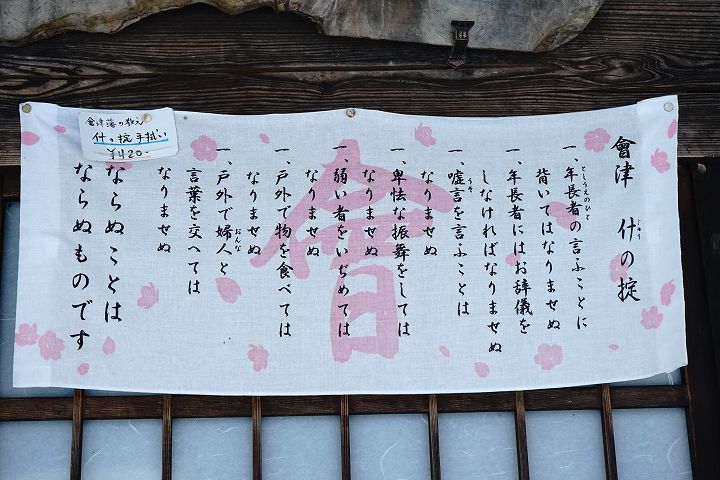 會津藩の教え
什の掟手拭い
¥420-
會津 什の掟
じゅう
一、年長者の言ふことに
としうえのひと
背いてはなりませぬ
一、年長者にはお辞儀を
しなければなりませぬ
一、嘘言を言ふことは
うそ
なりませぬ
一、卑怯な振舞をしては
なりませぬ
一、弱い者をいぢめては
なりませぬ
一、戸外で物を食べては
なりませぬ
一、戸外で婦人と
おんな
言葉を交へては
なりませぬ
ならぬことは
ならぬものです
會